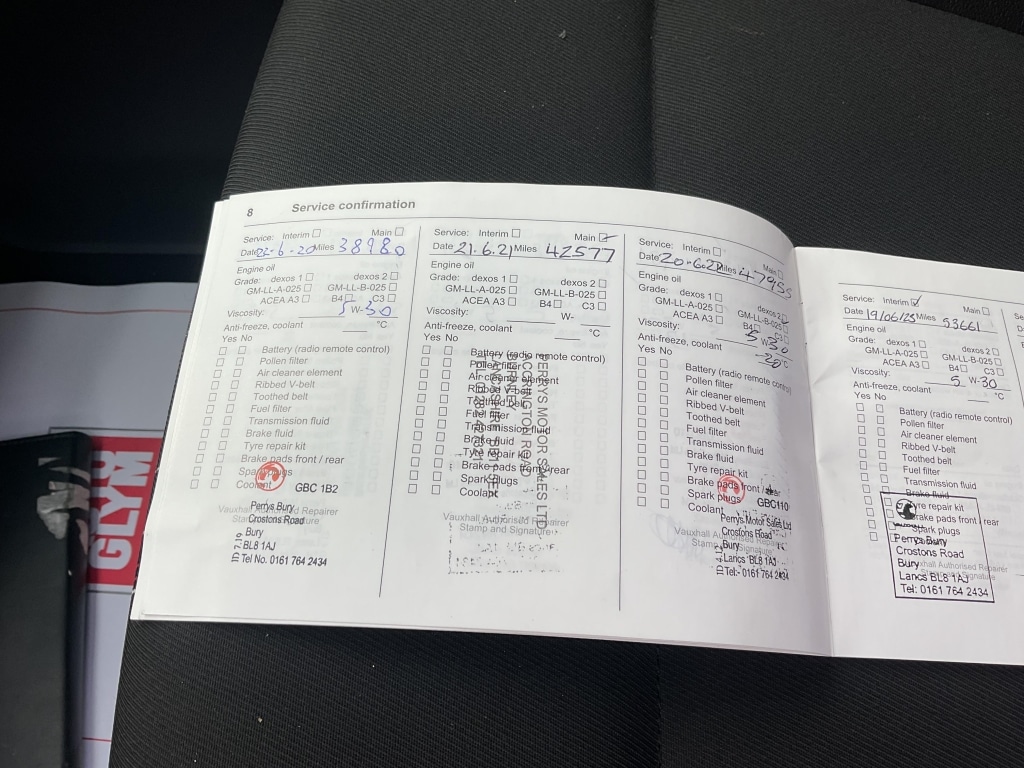 8 Service confirmation
Service: Interim Main
Date 22-6-20 Miles 38980
Engine oil
Grade: dexos 1 dexos 2
GM-LL-A-025 GM-LL-B-025
ACEA A3 B4 C3
Viscosity: 5 W-30
Anti-freeze, coolant °C
Yes No
Battery (radio remote control)
Pollen filter
Air cleaner element
Ribbed V-belt
Toothed belt
Fuel filter
Transmission fluid
Brake fluid
Tyre repair kit
Brake pads front / rear
Spark plugs
Coolant GBC 1B2
Perrys Bury
Vauxhall Authorised Repairer
Crostons Road
Stamp and Signature
Bury
BL8 1AJ
Tel No. 0161 764 2434
Service: Interim Main
Date 21.6.21 Miles 42577
Engine oil
Grade: dexos 1 dexos 2
GM-LL-A-025 GM-LL-B-025
ACEA A3 B4 C3
Viscosity: W-
Anti-freeze, coolant °C
Yes No
Battery (radio remote control)
Pollen filter
Air cleaner element
Ribbed V-belt
Toothed belt
Fuel filter
Transmission fluid
Brake fluid
Tyre repair kit
Brake pads front / rear
Spark plugs
Coolant
PERRYS MOTOR SALES LTD
ACCRINGTON ROAD
BURNLEY
Vauxhall Authorised Repairer
Stamp and Signature
Service: Interim Main
Date 20.6.22 Miles 47955
Engine oil
Grade: dexos 1 dexos 2
GM-LL-A-025 GM-LL-B-025
ACEA A3 B4 C3
Viscosity: 5 W-30
Anti-freeze, coolant -30 °C
Yes No
Battery (radio remote control)
Pollen filter
Air cleaner element
Ribbed V-belt
Toothed belt
Fuel filter
Transmission fluid
Brake fluid
Tyre repair kit
Brake pads front / rear
Spark plugs GBC110
Coolant
Perrys Motor Sales Ltd
Crostons Road
Vauxhall Authorised Repairer
Bury
Stamp and Signature
Lancs BL8 1AJ
Tel:- 0161 764 2434
Service: Interim Main
Date 19/06/23 Miles 53661
Engine oil
Grade: dexos 1 dexos 2
GM-LL-A-025 GM-LL-B-025
ACEA A3 B4 C3
Viscosity: 5 W-30
Anti-freeze, coolant °C
Yes No
Battery (radio remote control)
Pollen filter
Air cleaner element
Ribbed V-belt
Toothed belt
Fuel filter
Transmission fluid
Brake fluid
Tyre repair kit
Brake pads front / rear
Spark plugs
Perrys Bury
Crostons Road
Bury
Vauxhall Authorised Repairer
Lancs BL8 1AJ
Stamp and Signature
Tel: 0161 764 2434
GLYM